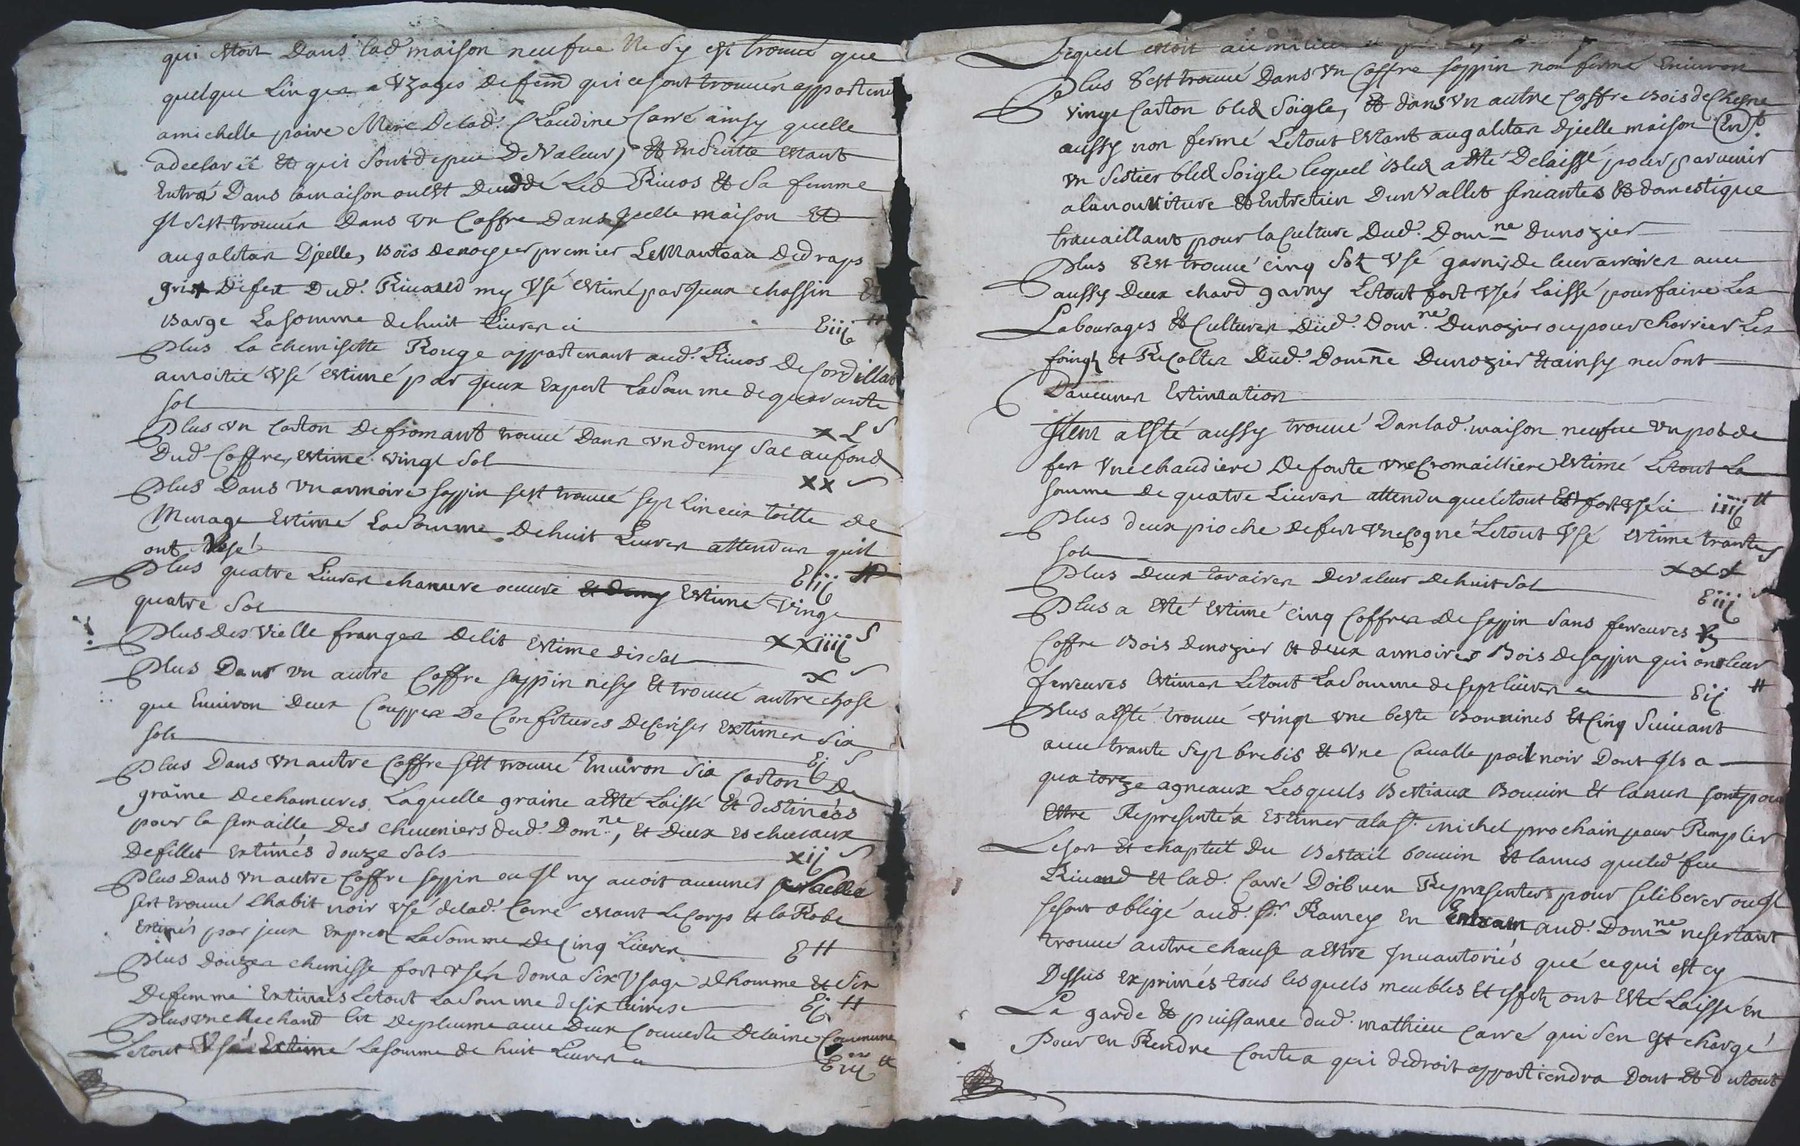 qui estoit dans lad. maison neufve Ne sy est trouvé que
quelque Linges a Uzages de fem̄e qui ce sont trouvéz appartenir
a michelle paire Mere de lad. Claudine Carré ainsy quelle
a declaréé et qui sont de peu de Valeur, et En Suitte Estant
Entréé Dans la maison ou est deceddé Led Rivos et Sa femme
Il sest trouvéz Dans Un Coffre Dans Jcelle maison Et
au galitas Djcelle, Bois de noyer premier Le Manteau de draps
gris de fert Dud. Rivaud my Usé estimé par Jeux chassin Et
Barge La somme de huit Livres ci Eiij #
Plus La chemisette Rouge appartenant aud. Rivos de Cordillat
a moitié Usé estimé par Jeux Expert La Somme de quarante
sol xL s
Plus un Carton de fromant trouvé Dans un demy Sac au fond
Dud Coffre, estimé vingt Sol xx s
Plus Dans un armoire sappin sest trouvé sept linceux toille de
Menage Estimé La Somme de huit Livres attendu quil
ont Usé Eiij #
Plus quatre Livres chanvre oeuvré et demy Estimé Vingt
quatre Sol xxiiij s
Plus des Vielle franges de lit Estime dix Sol x s
Plus Dans un autre Coffre sappin nesy Et trouvé autre chose
que Environ Deux Couppes De Confitures de Cerises Extimés Six
sols Ej s
Plus Dans un autre Coffre sest trouvé Environ Six Carton De
graine de chanvres Laquelle graine a esté Laissé Et destinéés
pour la semaille Des cheveniers dud. Dom.ne, et Deux Escheveaux
de fillet Extimés douze Sols xij s
Plus Dans un autre Coffre sappin ou Il ny avoit aucunes
sest trouvé L'habit noir Usé de lad. Carré Estant Le Corps et La Robe
Estimés par jeux Expert La Somme de Cinq Livres E #
Plus douze chemisse fort Usés dont a Six Usage dhomme et Six
De femme Extimés Le tout La Somme de six Livres Ej #
Plus un Mechand lit De plume avec Deux Couverte De laine Commune
Le tout Usé Extimé La somme de huit Livres ci Eiij #
Lequel estoit au milieu
Plus sest trouvé Dans un Coffre sappin non fermé Environ
vingt Carton bled Soigle, Et dans un autre Coffre Bois de Chesne
aussy non fermé Le tout Estant au galitas Djcelle maison
un Sestier bled Soigle lequel Bled a Esté Delaissé pour parvenir
a la nouriture Et Entretien Dun Vallet servantes Et domestique
travaillant pour la Culture Dud. Dom.ne Dunozier
Plus sest trouvé cinq Usé garny de leur avec
aussy Deux chard garny Le tout fort Usés Laissé pour faire Les
Labourages Et Cultures Dud. Dom.ne Dunozier ou pour charrier Les
foing Et Recoltes Dud. Dom̄ne Dunozier Et ainsy ne Sont
Daucunes Estimation
Item a Esté aussy trouvé Dans lad. maison neufve un pot de
fert Une chaudiere De fonte une Cromailliere Estimé Le tout La
somme de quatre Livres attendu que le tout Est fort Usé ci iiij #
Plus deux pioche de fert une Cogné Le tout Usé Estimé trante
sols xxx s
Plus Deux tarairer De valeur De huit Sol Eiij s
Plus a Esté Estimé Cinq Coffres De sappin Sans ferreures Un
Coffre Bois de nozier Et deux armoires Bois de sappin qui ont leur
ferreures Estimés Le tout La Somme de sept Livres ci Eij #
Plus a Esté trouvé vingt une beste Bouaines Et Cinq Suivant
avec trante Sept brebis Et Une Cavalle poil noir Dont Il y a
quatorze agneaux Lesquels Bestiaux Bouvin Et Lanus sont pour
Estre Representé a Estimer a la St. michel prochain pour Remplir
Le sort Et chaptail Du Bestail bouvin Et Lanus que led feu
Rivaud Et lad. Carré Doibven Representer pour se liberer ou Il
se sont obligé aud. Sr. Ramey En Entrant aud. Dom.ne ne sertant
trouvé autre chause a Estre Jnvantoriés que ce qui est cy
Dessus Exprimés tous les quels meubles Et effets ont Esté Laissé en
La garde Et puissance dud. mathieu Carré qui sen Est chargé
Pour en Rendre Conte a qui de droit appartiendra Dont Et du tout